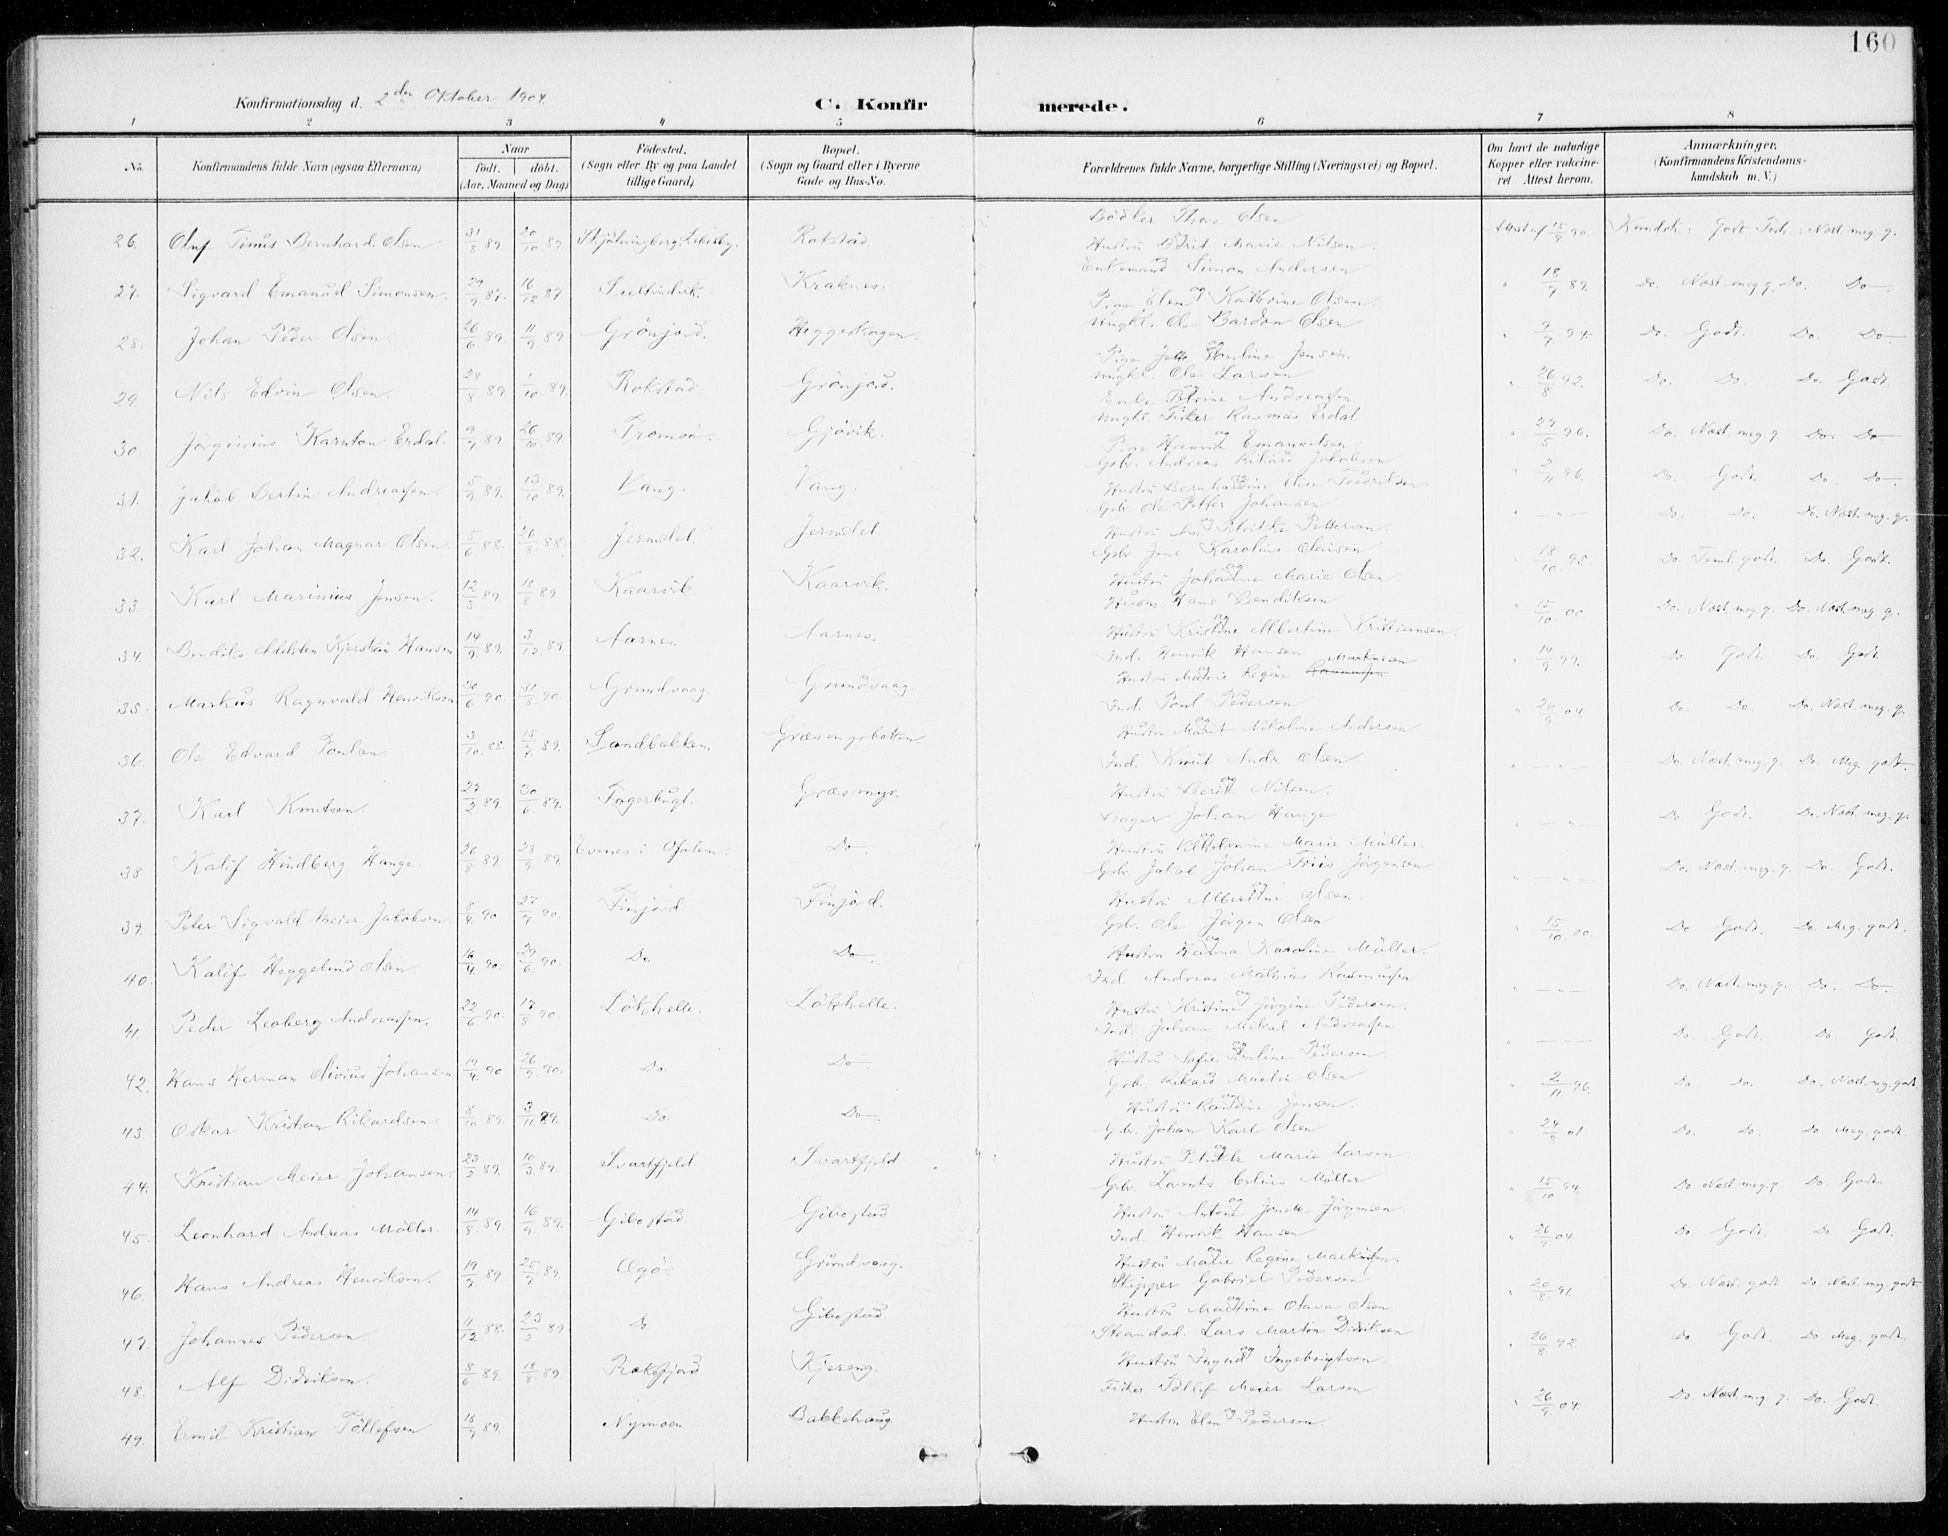 160
Konfirmationsdag d. 2den Oktober 1904.
C. Konfirmerede.
1 2 3 4 5 6 7 8
No. Konfirmandens fulde Navn (ogsaa Efternavn) Naar født. døbt. (Aar, Maaned og Dag) Fødested. (Sogn eller By og paa Landet tillige Gaard) Bopæl. (Sogn og Gaard eller i Byerne Gade og Hus-No. Forældrenes fulde Navne, borgerlige Stilling (Næringsvei) og Bopæl. Om havt de naturlige Kopper eller vakcineret. Attest herom. Anmærkninger. (Konfirmandens Kristendomskundskab m. V.)
26. Oluf Bernhard Olsen 31/8 89 20/10 89 Lebesby. Rokstad. Thor Olsen
Hustru Berit Marie Nilsen. Attest af 15/9 90. Kundsk: Godt Flid: Næst. meg. g.
27. Sigvard Emanuel Simonsen. 29/9 87. 16/12 87 Kraknes. Enkemand Simon Andersen
Pige Elen Kathrine Olsen. " 18/7 89. Do. Næst. meg g. Do. Do.
28. Johan Peder Olsen. 26/6 89. 11/9 89 Grønjord. Heggeskogen. Ungkl. Ole Bardon Olsen
Pige Jensen. " 9/7 94. Do. Godt. Do. Do.
29 Nils Edvin Olsen. 28/8 89 1/10 89. Rokstad. Grønjord. Ungkl. Ole Larsen
Enke Andreassen " 26/8 92. Do. Do. Do. Godt.
30. Jørginius Karnton Erdal. 9/7 89 26/10 89 Tromsø. Gjøvik. Ungkl. Fisker Rasmus Erdal
Pige Emanuelsen " 27/5 96. Do. Næst. meg g. Do. Do.
31. Jakob Bertin Andreassen. 5/9 89. 13/10 89. Vang. Vang. Gbr. Andreas Rikard Jakobsen
Hustru Fredriksen. " 2/11 96. Do. Godt. Do. Do.
32. Karl Johan Magnar Olsen. 5/6 88. 26/8 88. Jernslet Jernslet Gbr. Ole Petter Johansen
Hustru Pettersen. " — " — Do. Do. Do. Næst. meg. g.
33 Karl Marinius Jensen. 12/3 89. 18/8 89 Kaarvik Kaarvik. Gbr. Jens Karolius Olaisen
Hustru Johanne Marie Olsen. " 18/10 95. Do. Teml. godt. Do. Godt.
34. Bendiks Hansen 14/9 89. 3/12 89 Aarnes. Aarnes. Husm. Hans Bendiksen
Hustru Kristine Albertine Kristiansen. " 15/10 00 Do. Næst. meg g. Do. Næst. meg g.
35. Markus Ragnvald Henriksen 20/6 90. 31/8 90. Grundvaag. Grundvaag. Ind. Henrik Hansen
Hustru Marie Regine Markussen " 14/9 99. Do Godt Do. Godt.
36. Ole Edvard Poulsen. 3/10 88. 15/7 89. Sandbakken. Græsmyrbotten. Ind. Poul Pedersen
Hustru Marit Nikoline Andersen " 26/9 04 Do. Do. Do. Næst. meg. g.
37. Karl Knutsen. 27/2 89 30/6 89. Fagerbugt. Græsmyr. Ind. Knut Andr Olsen
Hustru Berit Nilsen. " — " — Do. Næst. meg. g. Do. Meg. godt.
38 Kalof Hindberg Hange. 26/8 89. 28/9 89 Evenes i Ofoten. Do. Bager Johan Hange
Hustru Vilhelmine Marie Møller. " — " Do. Godt. Do. Næst. meg. g.
39. Peter Sigvald Meier Jakobsen. 8/4 90 27/7 90. Finjord Finjord. Gbr. Jakob Johan Friis Jørgensen
Hustru Albertine Olsen. " — " — Do. Næst. meg. g. Do. Godt.
40. Kalof Heggelund Olsen. 16/4 90. 29/6 90. Do. Do. Gbr. Ole Jørgen Olsen
Hustru Hanna Karoline Møller. " 15/10 00. Do Godt. Do. Meg. godt.
41. Peder Leoberg Andreassen. 22/6 90. 17/8 90. Løkhelle. Løkhelle. Ind. Andreas Mathias Rasmussen
Hustru Kristine Jørgine Pedersen. " — " — Do. Næst. meg. g. Do. Do.
42. Hans Herman Sivius Johansen 19/4 90 26/9 90. Do. Do. Ind. Johan Mikal Andreassen
Hustru Sofie Pedersen. " — Do. Godt. Do. Godt.
43. Oskar Kristian Rikardsen. 8/10 89. 3/11 89. Do. Do. Gbr. Rikard Martin Olsen
Hustru Jensen. " 2/11 96. Do Do. Do. Næst. meg. godt.
44. Kristian Meier Johansen. 23/2 89. 10/3 89. Svartfjeld Svartfjeld Gbr. Johan Karl Olsen
Hustru Marie Larsen. " 24/8 01 Do. Do. Do. Meg. godt.
45. Leonhard Andreas Møller. 14/8 89. 16/9 89. Gibostad. Gibostad Gbr. Møller
Hustru Jørgensen " 15/10 94. Do Næst. meg. g Do. Godt
46. Hans Andreas Henriksen. 19/7 89 25/9 89. Ogø. Grundvaag. Ind. Henrik Hansen
Hustru Marie Regine Markussen. " 26/9 04 Do. Godt. Do. Godt.
47. Johannes Pedersen. 11/12 88. 23/2 89 Do Gibostad Skipper Gabriel Pedersen
Hustru Martine Olava Olsen " 20/8 91. Do. Næst. godt. Do. Næst. meg. godt.
48. Alf Didriksen. 8/6 89. 18/8 89 Roksfjord Kjereng. Strandsd. Lars Martin Didriksen
Hustru Ingvid Ingebrigtsen. " 26/8 92 Do Godt. Do Meg. godt.
49. Emil Kristian Tøllefsen 13/7 89. Nymoen Bakkehaug Fisker Tøllef Meier Larsen
Hustru Elen Pedersen. " 26/9 04. Do. Næst. meg. g. Do. Godt.